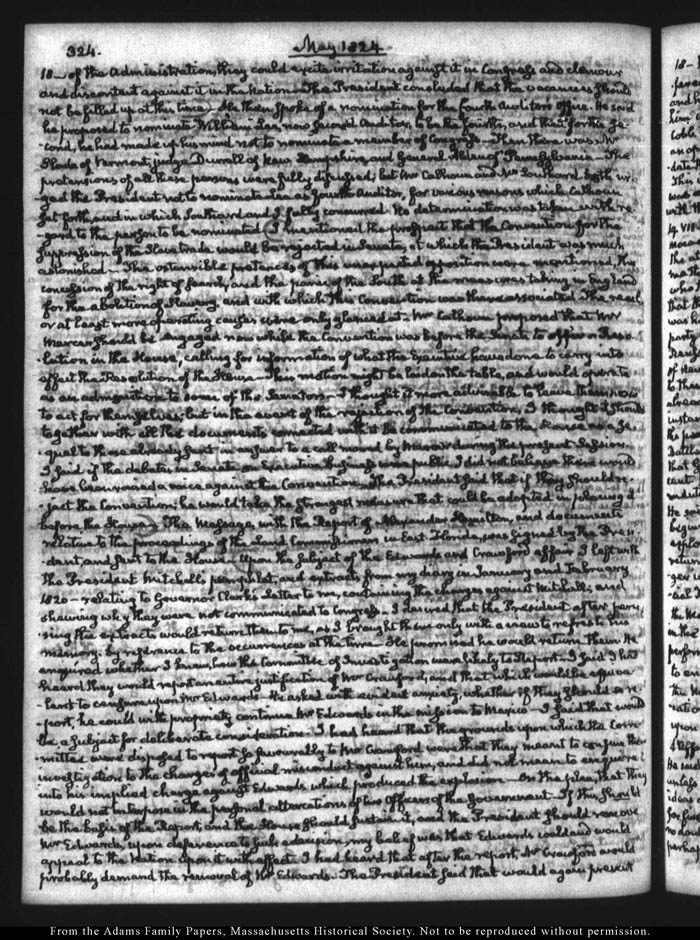 324.
May 1824
18— of the Administration, they could excite irritation against it in Congress and clamour
and discontent against it in the Nation. The President concluded that the vacancies should
not be filled up at this time. He then spoke of a nomination for the fourth Auditor's office. He said
he proposed to nominate William Lee, now second Auditor, to be the fourth, and then for the Se-
-cond, he had made up his mind not to nominate a member of Congress. Then there was Mr
Slade of Vermont, judge Durell of New Hampshire, and General of Pennsylvania. The
pretensions of all these persons were fully discussed, but Mr Calhoun and Mr Southard both ur-
ged the President not to nominate Lee as fourth Auditor, for various reasons which Calhoun
set forth, and in which Southard and I fully concurred. No determination was taken with re-
-gard to the person to be nominated. I mentioned the prospect that the Convention for the
suppression of the Slave trade would be rejected in Senate, at which the President was much
astonished. The ostensible pretences of this unexpected opposition were mentioned, the
concession of the right of search, and the panic of the South at the measures taking in England
for the abolition of Slavery, and with which this Convention was there associated. The real
or at least more operating causes were only glanced at. Mr Calhoun proposed that Mr
Mercer should be engaged now while the Convention was before the Senate to offer a Reso-
-lution in the House, calling for information of what the Executive have done to carry into
effect the Resolution of the House. This motion might be laid on the table, and would operate
as an admonition to some of the Senators. I thought it more advisable to leave them now
to act for themselves; but in the event of the rejection of the Convention, I thought it should
together with all the documents connected with it be communicated to the House as a Se-
-quel to those already sent in answer to a call moved by Mercer during the present Session.
I said if the debates in Senate on Executive business were public I did not believe there would
have been raised a voice against the Convention. The President said that if they should re-
-ject the Convention he would take the strongest measure that could be adopted in placing it
before the House. The Message, with the Report of Alexander Hamilton, and documents
relative to the proceedings of the Land Commissioners in East Florida, was signed by the Presi-
-dent, and sent to the House. Upon the subject of the Edwards and Crawford affair I left with
the President Mitchell's pamphlet, and extracts from my diary in January and February
1820 — relating to Governor Clark's letter to me, containing the charges against Mitchell; and
shewing why they were not communicated to Congress. I desired that the President after peru-
sing the extracts would return them to me, as I brought them only with a view to refresh his
memory, by reference to the occurrences at the time. He promised he would return them. He
enquired whether I knew how the Committee of Investigation were likely to Report. I said I had
heard they would report an entire justification of Mr Crawford, and that which would be equiva-
-lent to censure upon Mr Edwards. He asked with evident anxiety, whether if they should so re-
-port, he could with propriety continue Mr Edwards in the mission to Mexico. I said that would
be a subject for deliberate consideration. I had heard that the grounds upon which the Com-
-mittee were disposed to report so favourably to Mr Crawford were that they meant to confine their
investigation to the charges of official misconduct against him, and did not mean to enquire
into his implied charge against Edwards which produced the explosion. On the plea that they
would not interpose in the personal altercations of two Officers of the Government. If this should
be the basis of the Report, and the House should sustain it, and the President should remove
Mr Edwards, upon deference to such a decision, my belief was that Edwards could and would
appeal to the Nation upon it with effect. I had heard that after the report, Mr Crawford would
probably demand the removal of Mr Edwards. The President said that would again present
From the Adams Family Papers, Massachusetts Historical Society. Not to be reproduced without permission.